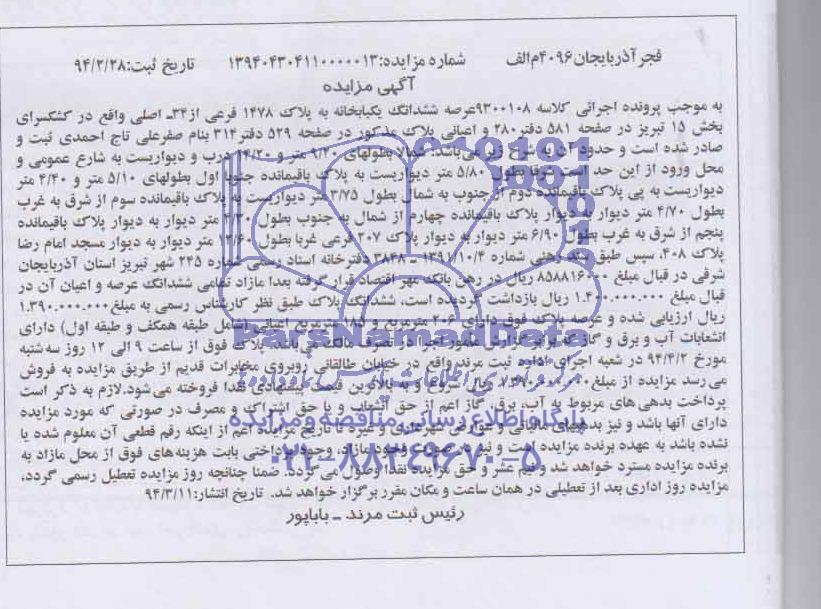 فجر آذربایجان ۴۰۹۶م الف شماره مزایده: ۱۳۹۴۰۴۳۰۴۱۱۰۰۰۰۰۱۳ تاریخ ثبت: ۹۴/۲/۲۸
آگهی مزایده
به موجب پرونده اجرائی کلاسه ۹۳۰۰۱۰۸ عرصه ششدانگ یکبابخانه به پلاک ۱۴۷۸ فرعی از ۳۴- اصلی واقع در کشکسرای
بخش ۱۵ تبریز در صفحه ۵۸۱ دفتر ۲۸۰ و اعیانی پلاک مذکور در صفحه ۵۲۹ دفتر ۳۱۴ بنام صفرعلی تاج احمدی ثبت و
صادر شده است و حدود آن به شرح زیر می‌باشد: شمالا بطولهای ۹/۲۰ متر و ۱۴/۲۰ درب و دیواریست به شارع عمومی و
محل ورود از این حد است شرقا بطول ۵/۸۰ متر دیواریست به پلاک باقیمانده جنوبا اول بطولهای ۵/۱۰ متر و ۴/۴۰ متر
دیواریست به پی پلاک باقیمانده دوم از جنوب به شمال بطول ۳/۷۵ متر دیواریست به پلاک باقیمانده سوم از شرق به غرب
بطول ۴/۷۰ متر دیوار به دیوار پلاک باقیمانده چهارم از شمال به جنوب بطول ۴/۳۰ متر دیوار به دیوار پلاک باقیمانده
پنجم از شرق به غرب بطول ۶/۹۰ متر دیوار به دیوار پلاک ۳۰۷ فرعی غربا بطول متر دیوار به دیوار مسجد امام رضا
پلاک ۴۰۸، سپس طبق سند رهنی شماره ۳۸۴۸ - ۱۳۹۱/۱۰/۴ دفترخانه اسناد رسمی شماره ۲۴۵ شهر تبریز استان آذربایجان
شرقی در قبال مبلغ ریال در رهن بانک مهر اقتصاد قرار گرفته بعدا مازاد تمامی ششدانگ عرصه و اعیان آن در
قبال مبلغ ۱.۴۰۰.۰۰۰.۰۰۰ ریال بازداشت گردیده است، ششدانگ پلاک طبق نظر کارشناس رسمی به مبلغ ۱.۳۹۰.۰۰۰.۰۰۰
ریال ارزیابی شده و عرصه پلاک فوق دارای ۲۰۶ مترمربع و ۱۸۵ مترمربع اعیانی (شامل طبقه همکف و طبقه اول) دارای
انشعابات آب و برق و گاز که برابر گزارش مامور اجرا در تصرف مالک می‌باشد. پلاک فوق از ساعت ۹ الی ۱۲ روز سه‌شنبه
مورخ ۹۴/۴/۲ در شعبه اجرای اداره ثبت مرند واقع در خیابان طالقانی روبروی مخابرات قدیم از طریق مزایده به فروش
می‌رسد مزایده از مبلغ ریال شروع و به بالاترین قیمت پیشنهادی نقدا فروخته می‌شود. لازم به ذکر است
پرداخت بدهی‌های مربوط به آب، برق، گاز اعم از حق انشعاب و یا حق اشتراک و مصرف در صورتی که مورد مزایده
دارای آنها باشد و نیز بدهیهای مالیاتی و عوارض شهرداری و غیره تا تاریخ مزایده اعم از اینکه رقم قطعی آن معلوم شده یا
نشده باشد به عهده برنده مزایده است و نیز در صورت وجود مازاد، وجوه پرداختی بابت هزینه‌های فوق از محل مازاد به
برنده مزایده مسترد خواهد شد و نیم عشر و حق مزایده نقدا وصول می‌گردد. ضمنا چنانچه روز مزایده تعطیل رسمی گردد،
مزایده روز اداری بعد از تعطیلی در همان ساعت و مکان مقرر برگزار خواهد شد. تاریخ انتشار: ۹۴/۳/۱۱
رئیس ثبت مرند - باباپور
ParsNamadData
پایگاه اطلاع رسانی مناقصه و مزایده
۰۲۱-۸۸۳۴۹۶۷۰-۵